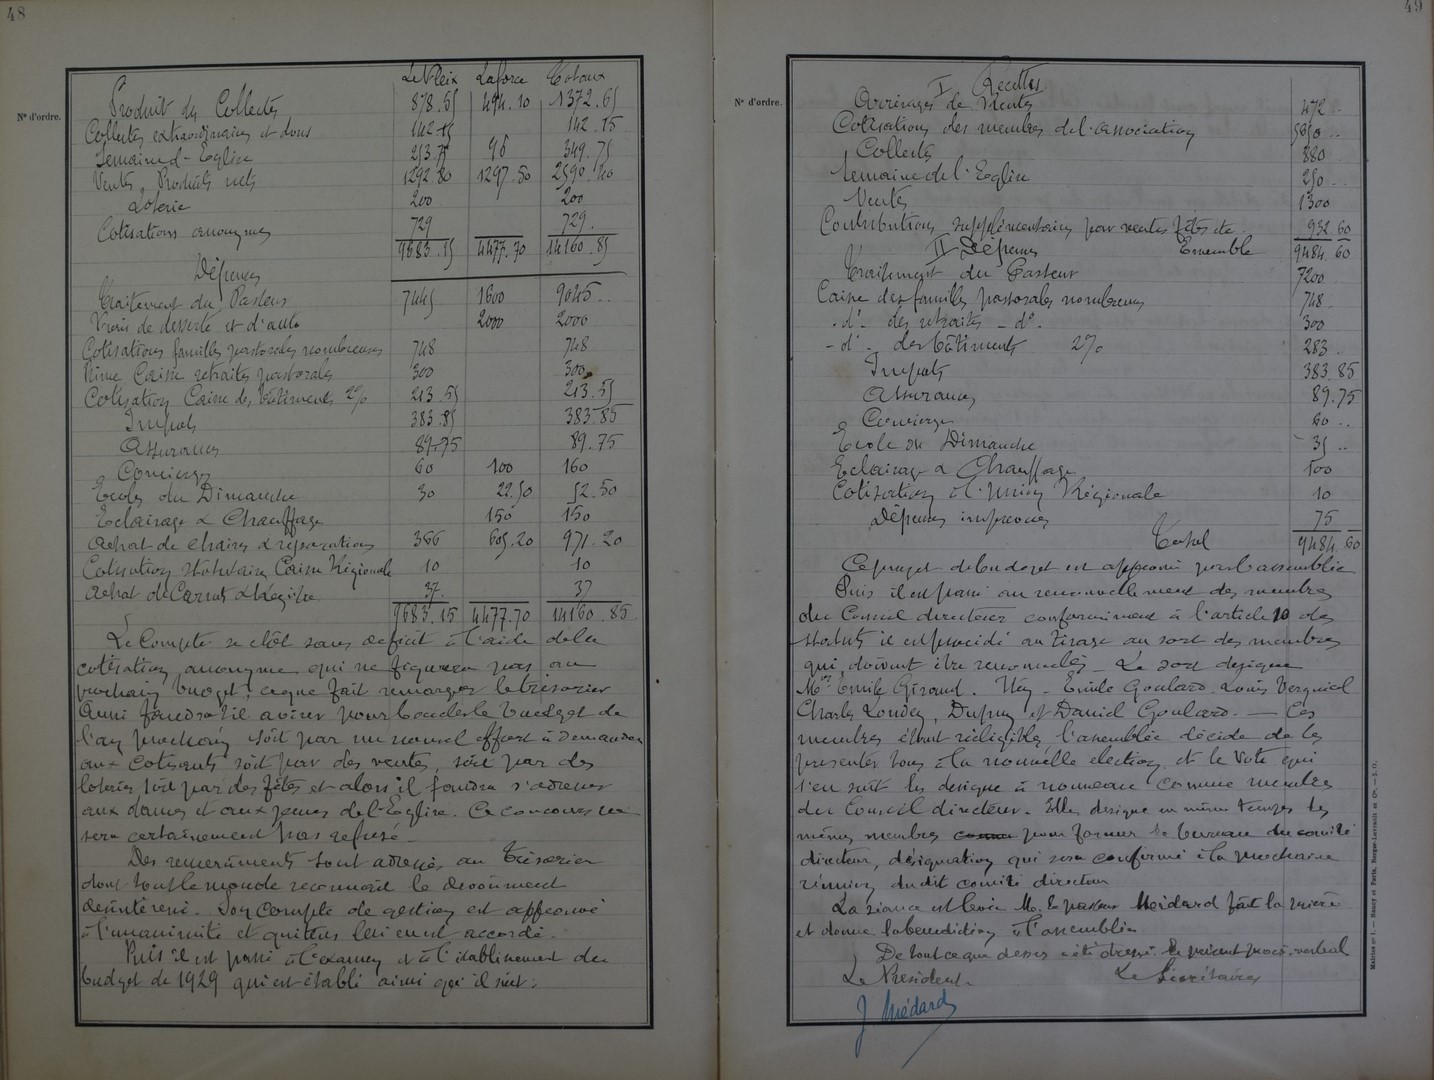 48
N° d'ordre.
Le Fleix Laforce Totaux
Produit des Collectes 878.55 494.10 1372.65
Collectes extraordinaires et dons 142.15 142.15
Semaine d'Eglise 253.75 96 349.75
Ventes, Produits nets 1292.80 1297.50 2590.40
Loterie 200 200
Cotisations anonymes 729 729.
9683.15 4477.70 14160.85
Dépenses
Traitement du Pasteur 7445 1600 9045..
Frais de desserte et d'auto 2000 2000
Cotisations familles pastorales nombreuses 748 748
Prime Caisse retraites pastorales 300 300
Cotisation Caisse des bâtiments 2% 213.55 213.55
Impots 383.85 383.85
Assurances 89.75 89.75
Concierges 60 100 160
Ecoles du Dimanche 30 22.50 52.50
Eclairage & Chauffage 150 150
Achat de chaises & réparations 366 605.20 971.20
Cotisation statutaire Caisse Régionale 10 10
Achat de Carnets & Régistre 37. 37
9683.15 4477.70 14160.85
Le Compte se clôt sans deficit à l'aide de la
cotisation anonyme qui ne figurera pas au
prochain budget, ce que fait remarquer le trésorier
Aussi faudra-t-il aviser pour boucler le budget de
l'an prochain, soit par un nouvel effort à demander
aux cotisants soit par des ventes, soit par des
loteries soit par des fêtes et alors il faudra s'adresser
aux dames et aux jeunes de l'Eglise. Ce concours ne
sera certainement pas refusé
Des remerciments sont adressés au Trésorier
dont tout le monde reconnait le dévoûment
désintéressé. Son compte de gestion est approuvé
à l'unanimité et quitus lui en est accordé.
Puis il est passé à l'examen et à l'établissement du
budget de 1929 qui est établi ainsi qu'il suit:
49
N° d'ordre.
I Recettes
Arrérages de Rentes 472 ..
Cotisations des membres de l'association 5650 ..
Collectes 880
Semaine de l'Eglise 250 ..
Ventes 1300
Contributions supplémentaires par ventes fêtes etc. 932 60
II Dépenses Ensemble 9484.60
Traitement du Pasteur 7200
Caisse des familles pastorales nombreuses 748
- d° - des retraites - d° - 300
- d° - des bâtiments 2% 283
Impots 383 85
Assurances 89.75
Concierge 60 ..
Ecole du Dimanche 35 ..
Eclairage & Chauffage 100
Cotisation à l'Union Régionale 10
Dépenses imprévues 75
Total 9484.60
Ce projet de budget est approuvé par l'assemblée
Puis il est passé au renouvellement des membres
du Conseil directeur conformément à l'article 10 des
statuts il est procédé au tirage au sort des membres
qui doivent être renouvelés - Le sort désigne
Mrs Emile Giraud. Emile Goulard. Louis Vergniol
Charles Loudey, Dupuy et Daniel Goulard. — Ces
membres étant rééligibles, l'assemblée décide de les
présenter tous à la nouvelle élection, et le vote qui
s'en suit les désigne à nouveau comme membres
du Conseil directeur. Elle désigne en même temps les
mêmes membres comme pour former le bureau du comité
directeur, désignation qui sera confirmée à la prochaine
réunion dudit comité directeur
La séance est levée M. le pasteur Médard fait la prière
et donne la bénédiction à l'assemblée
De tout ce que dessus a été dressé le présent procès-verbal
Le Président Le Secrétaire
J Médard
Mairies n° 1. — Nancy et Paris, Berger-Levrault et Cie. — J. O.